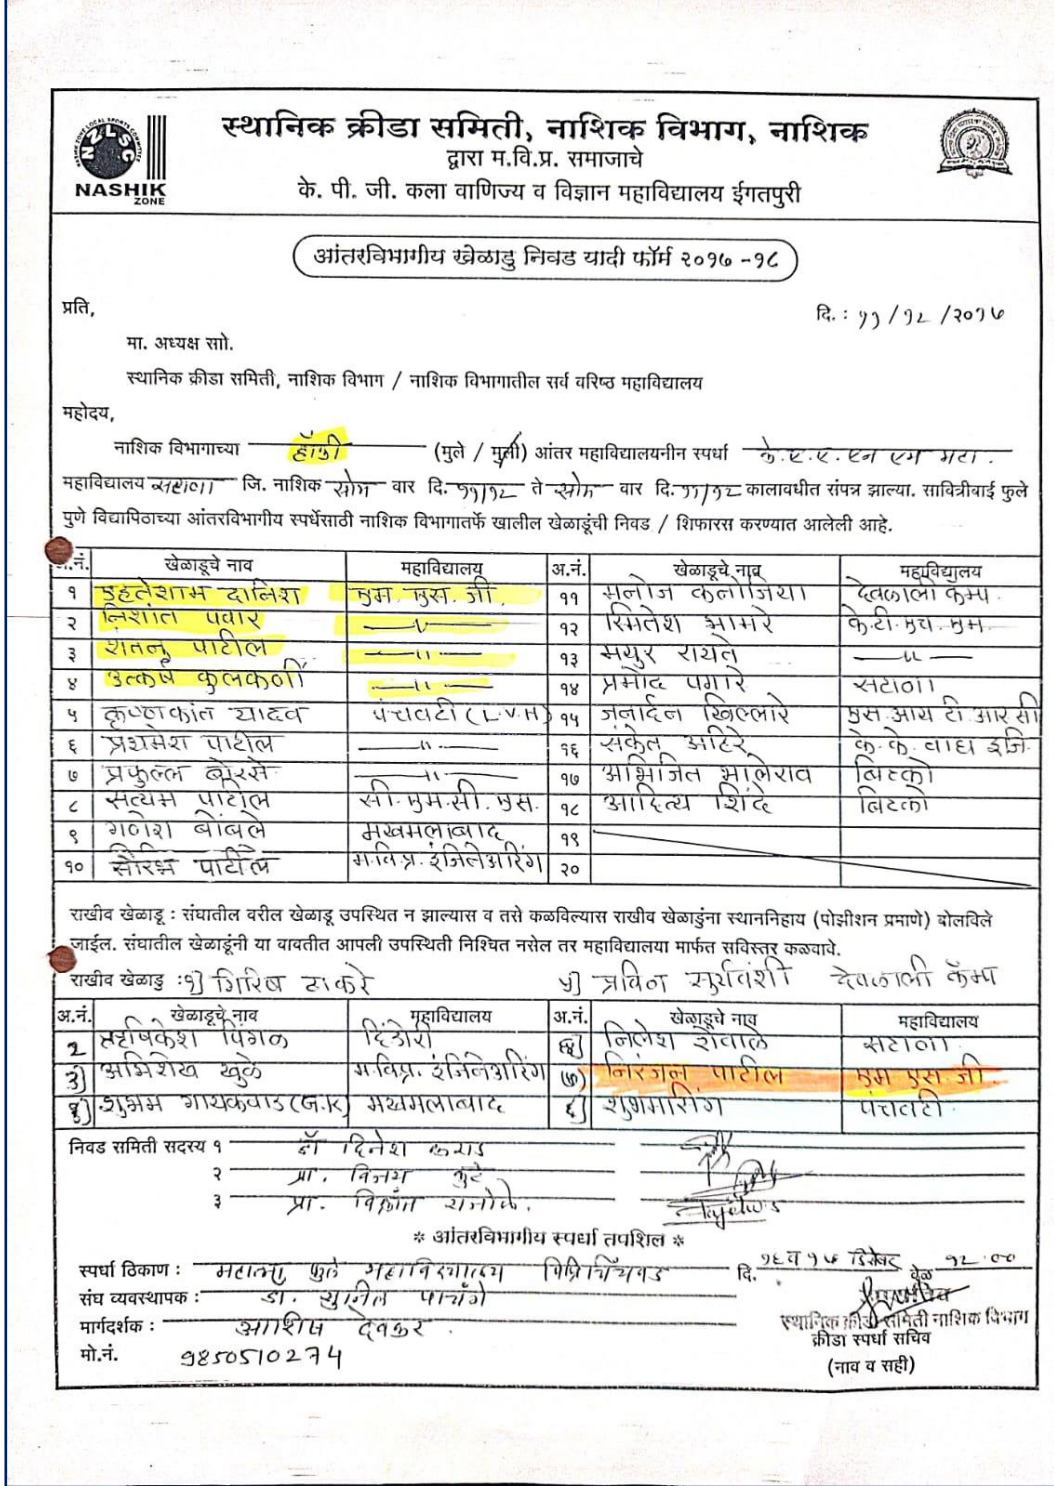 NASHIK
ZONE
स्थानिक क्रीडा समिती, नाशिक विभाग, नाशिक
द्वारा म.वि.प्र. समाजाचे
के. पी. जी. कला वाणिज्य व विज्ञान महाविद्यालय ईगतपुरी
आंतरविभागीय खेळाडु निवड यादी फॉर्म २०१७ -१८
प्रति,
दि. : ११/१२/२०१७
मा. अध्यक्ष सो.
स्थानिक क्रीडा समिती, नाशिक विभाग / नाशिक विभागातील सर्व वरिष्ठ महाविद्यालय
महोदय,
नाशिक विभागाच्या हॉकी (मुले / मुली) आंतर महाविद्यालयनीन स्पर्धा
महाविद्यालय सटाणा जि. नाशिक सोम वार दि. ११/१२ ते सोम वार दि. ११/१२ कालावधीत संपन्न झाल्या. सावित्रीबाई फुले
पुणे विद्यापिठाच्या आंतरविभागीय स्पर्धेसाठी नाशिक विभागातर्फे खालील खेळाडूंची निवड / शिफारस करण्यात आलेली आहे.
अ.नं. खेळाडूचे नाव महाविद्यालय अ.नं. खेळाडूचे नाव महाविद्यालय
१ एहतेशाम दानिश एम. एस. जी. ११ मनोज कनोजिया देवळाली कॅम्प
२ निशांत पवार —"— १२ स्मितेश भामरे के.टी.एच.एम.
३ शंतनू पाटील —"— १३ मयुर रायते —"—
४ उत्कर्ष कुलकर्णी —"— १४ प्रमोद पगारे सटाणा
५ कृष्णकांत यादव पंचवटी (L.V.H) १५ जनार्दन खिल्लारे एस.आय.टी.आर.सी
६ प्रथमेश पाटील —"— १६ संकेत अहिरे के.के. वाघ इंजि.
७ प्रफुल्ल बोरसे —"— १७ अभिजित भालेराव बिटको
८ सत्यम पाटील सी.एम.सी.एस. १८ आदित्य शिंदे बिटको
९ गणेश बोंबले मखमलाबाद १९
१० सौरभ पाटील म.वि.प्र. इंजिनेअरिंग २०
राखीव खेळाडू : संघातील वरील खेळाडू उपस्थित न झाल्यास व तसे कळविल्यास राखीव खेळाडुंना स्थाननिहाय (पोझीशन प्रमाणे) बोलविले
जाईल. संघातील खेळाडूंनी या बाबतीत आपली उपस्थिती निश्चित नसेल तर महाविद्यालया मार्फत सविस्तर कळवावे.
राखीव खेळाडु : १) गिरिष ठाकरे ५) प्रविण सुर्यवंशी देवळाली कॅम्प
अ.नं. खेळाडूचे नाव महाविद्यालय अ.नं. खेळाडूचे नाव महाविद्यालय
२ ऋषिकेश पिंगळ दिंडोरी निलेश शेवाळे सटाणा
३) अभिशेख खुळे म.वि.प्र. इंजिनेअरिंग (७) निरंजन पाटील एम एस. जी.
४) शुभम गायकवाड (G.K) मखमलाबाद शुभमसिंग पंचवटी
निवड समिती सदस्य १ डॉ दिनेश कराड
२ प्रा. विजय
३ प्रा. विक्रांत राजोळे.
* आंतरविभागीय स्पर्धा तपशिल *
स्पर्धा ठिकाण : महात्मा फुले महाविद्यालय पिंपरिचिंचवड दि. १६ व १७ डिसेंबर वेळ १२.००
संघ व्यवस्थापक : डॉ. सुनिल पाचंगे
मार्गदर्शक : आशिष देवकर.
स्थानिक क्रीडा समिती नाशिक विभाग
क्रीडा स्पर्धा सचिव
मो.नं. 9850510274
(नाव व सही)